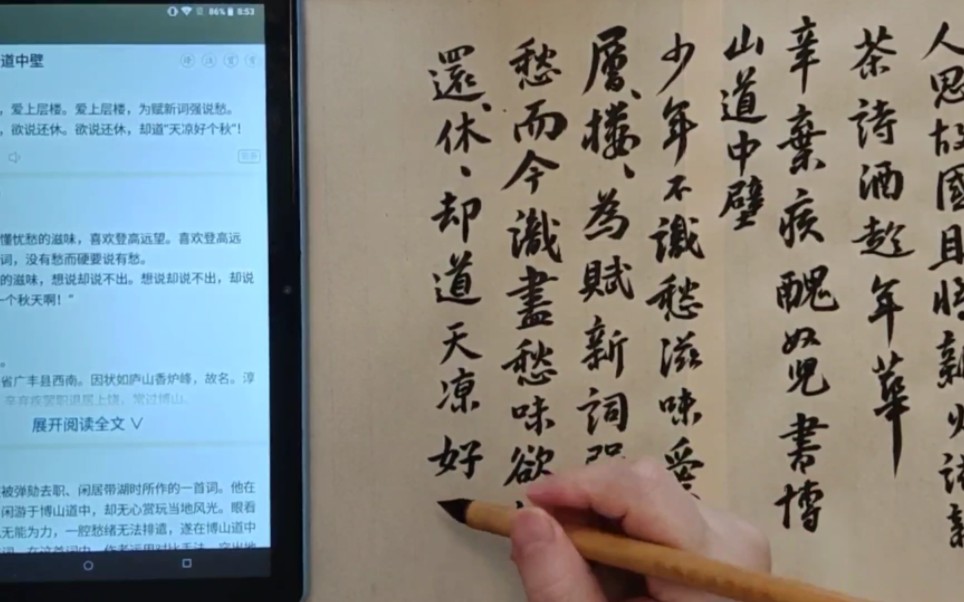 86% 8:53
道中壁
，爱上层楼。爱上层楼，为赋新词强说愁。
，欲说还休。欲说还休，却道“天凉好个秋”！
懂忧愁的滋味，喜欢登高远望。喜欢登高远
词，没有愁而硬要说有愁。
的滋味，想说却说不出。想说却说不出，却说
一个秋天啊！”
省广丰县西南。因状如庐山香炉峰，故名。淳
辛弃疾罢职退居上饶，常过博山。
展开阅读全文
被弹劾去职、闲居带湖时所作的一首词。他在
闲游于博山道中，却无心赏玩当地风光。眼看
无能为力，一腔愁绪无法排遣，遂在博山道中
人思故國且將新火試新
茶詩酒趁年華
辛棄疾醜奴兒書博
山道中壁
少年不識愁滋味愛
層、樓、為賦新詞
愁而今識盡愁味欲
還、休、却道天凉好